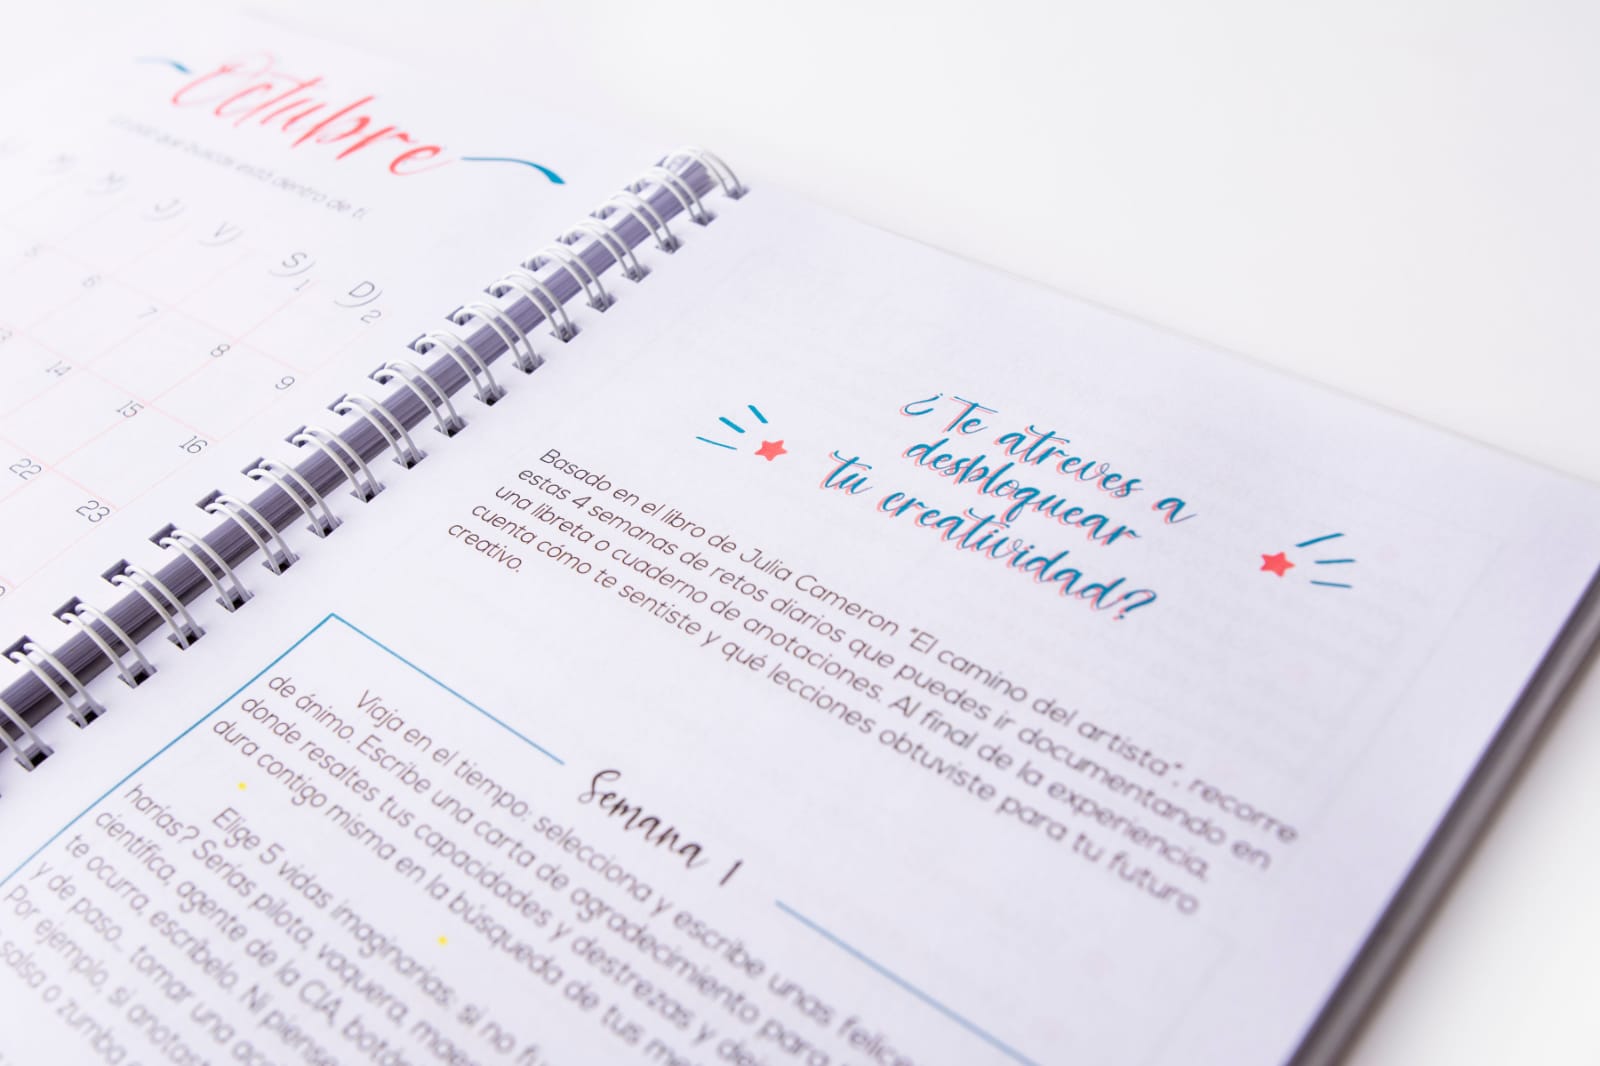 Octubre
que buscas está dentro de ti
M) J) V) S) D)
1 2
5 6 7 8 9
14 15 16
22 23
¿Te atreves a
desbloquear
tu creatividad?
Basado en el libro de Julia Cameron "El camino del artista", recorre
estas 4 semanas de retos diarios que puedes ir documentando en
una libreta o cuaderno de anotaciones. Al final de la experiencia,
cuenta cómo te sentiste y qué lecciones obtuviste para tu futuro
creativo.
Semana 1
Viaja en el tiempo: selecciona y escribe unas felice
de ánimo. Escribe una carta de agradecimiento para
donde resaltes tus capacidades y destrezas y
dura contigo misma en la búsqueda de tus
Elige 5 vidas imaginarias: si no
harías? Serías piloto, vaquera,
científica, agente de la CIA,
te ocurra, escríbelo. Ni
y de paso... tomar una
Por ejemplo, si
salsa o zumba